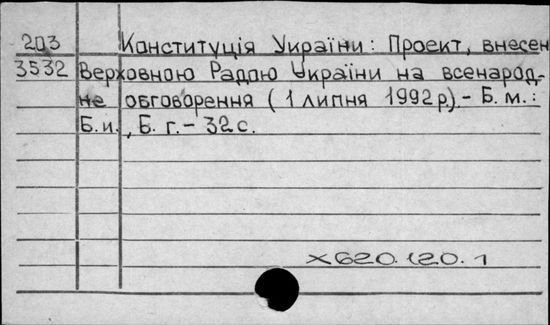 203 Конституція України: Проект, внесен
3532 Верховною Радою України на всенарод-
не обговорення (1 липня 1992 р).- Б. м.:
Б. и., Б. г.- 32 с.
х620.120.1